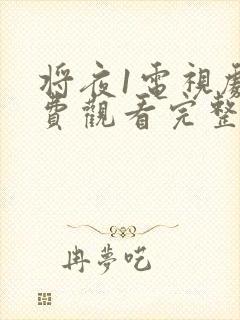 將夜1電視劇
費觀看完整
冉夢吃